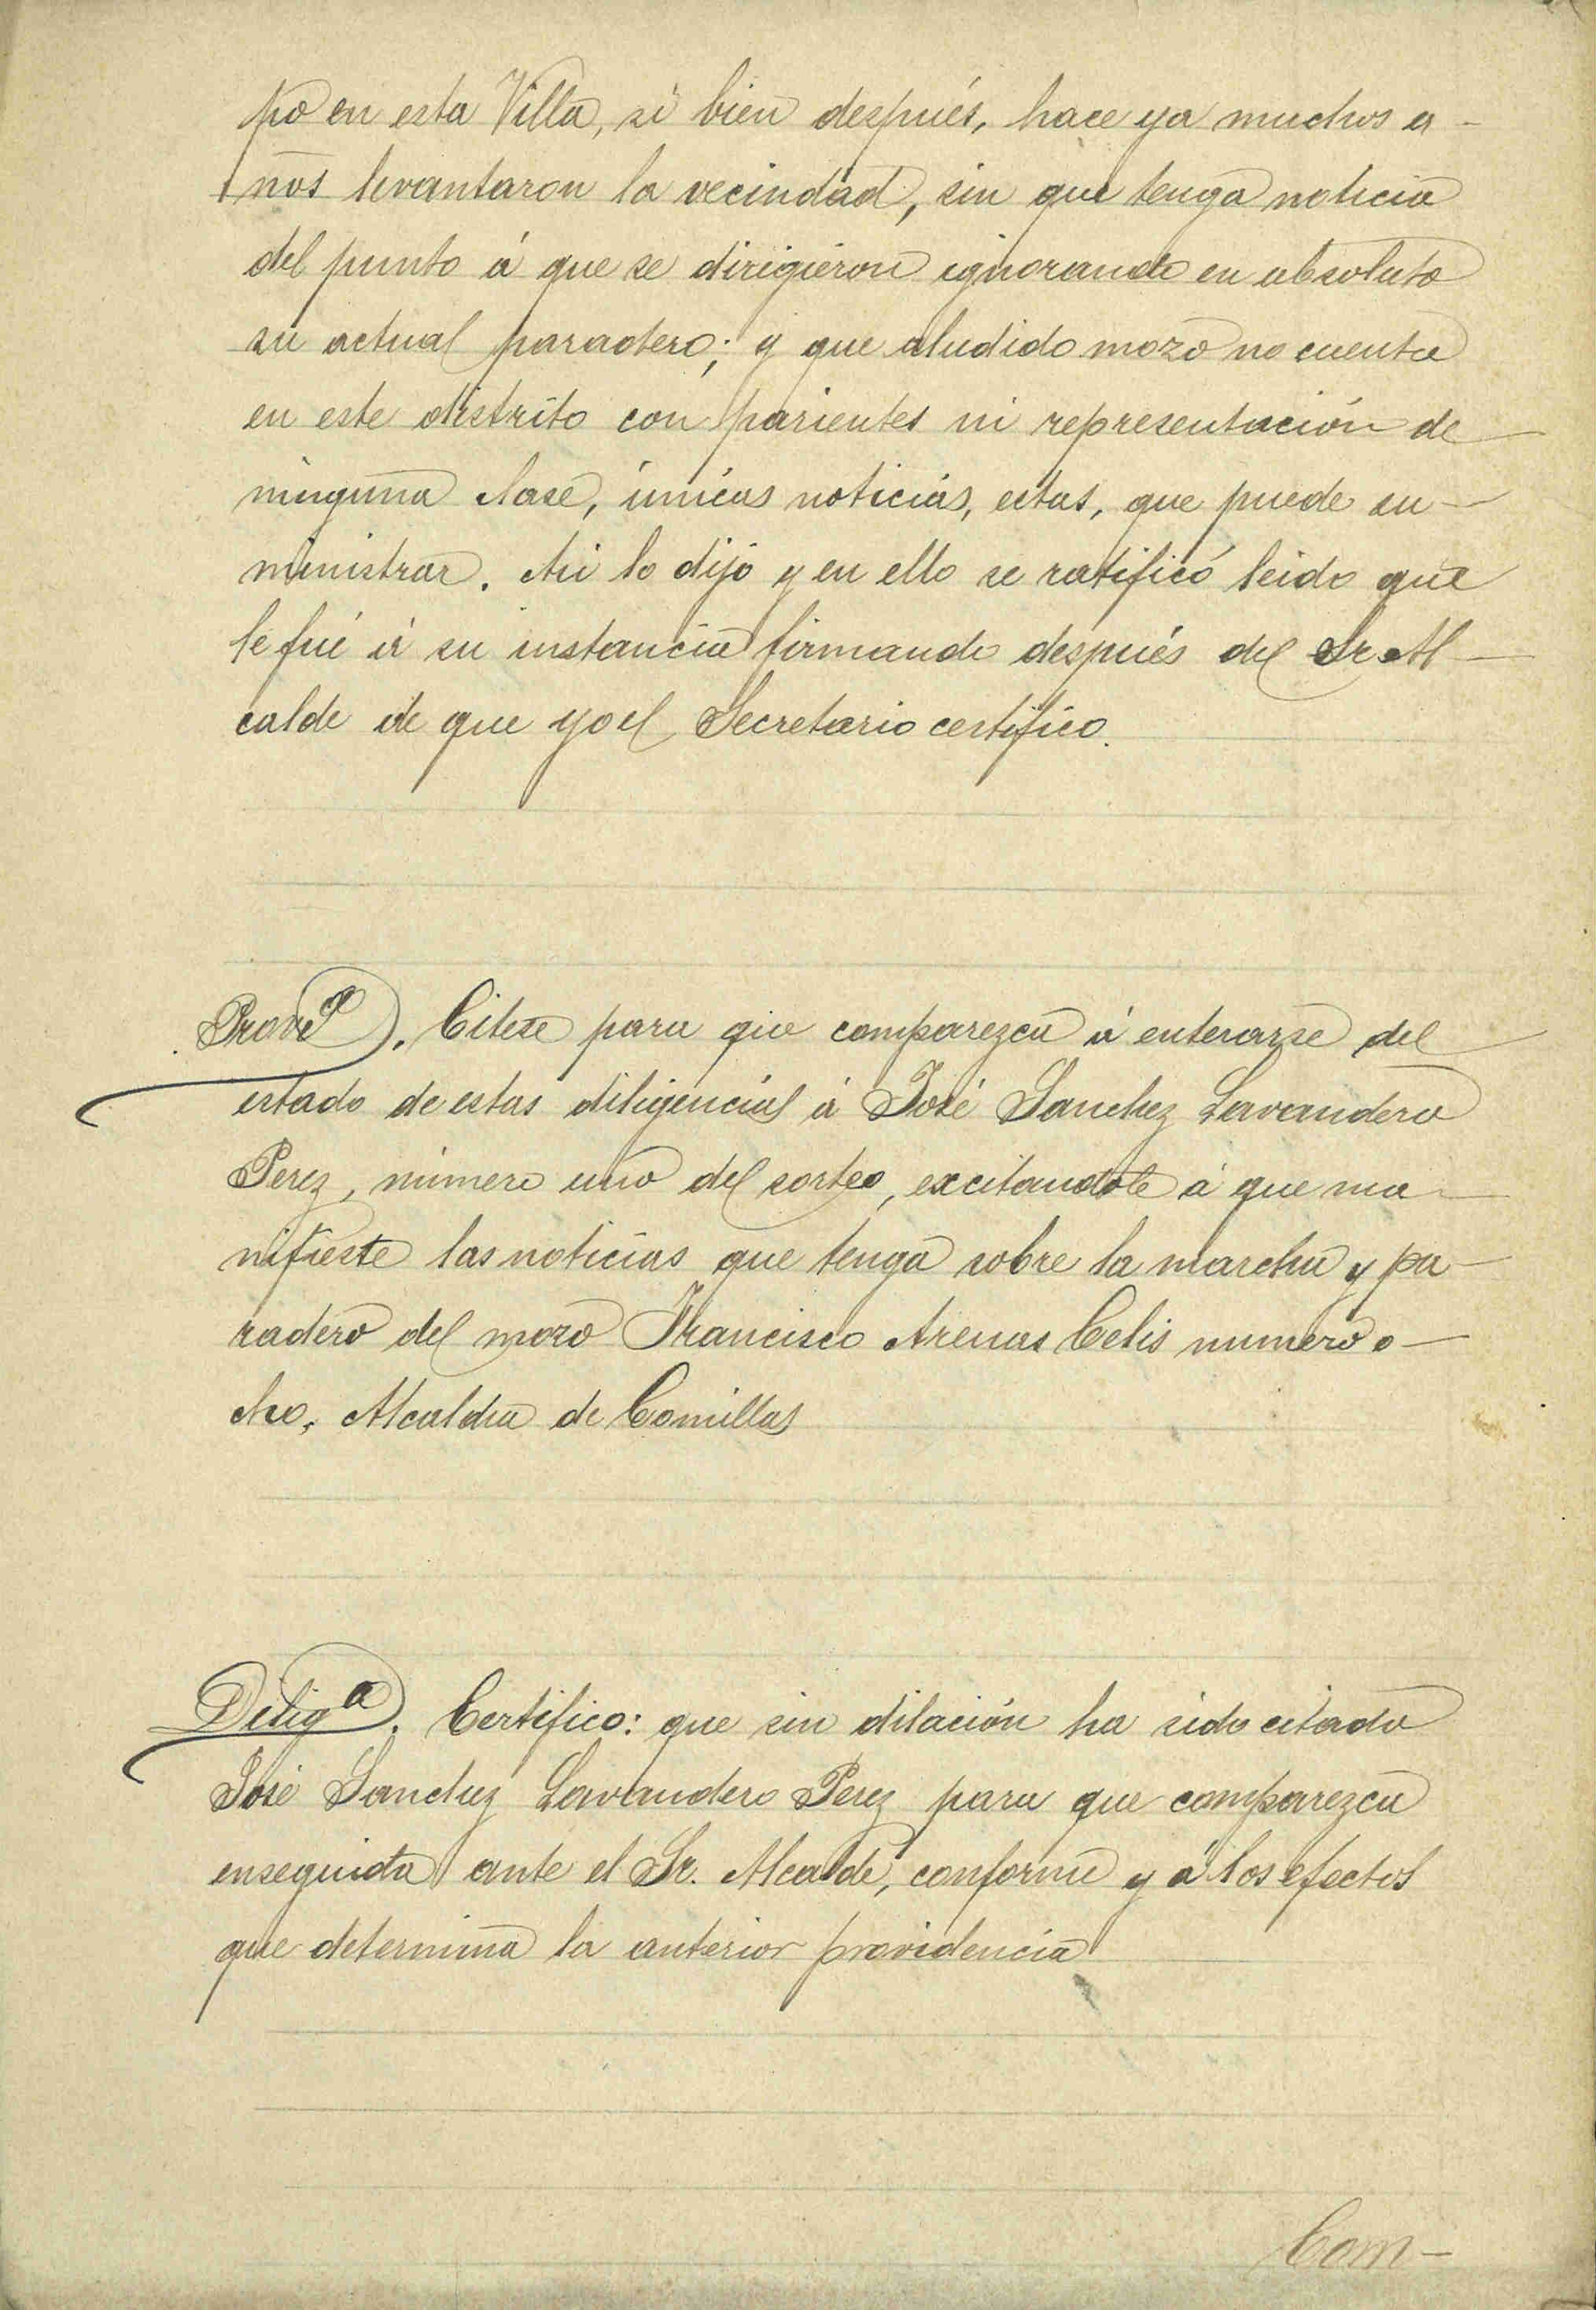 po en esta Villa, si bien después, hace ya muchos a-
ños levantaron la vecindad, sin que tenga noticia
del punto á que se dirigieron ignorando en absoluto
su actual paradero; y que aludido mozo no cuenta
en este distrito con parientes ni representación de
ninguna clase, únicas noticias, estas, que puede su-
ministrar. Asi lo dijo y en ello se ratificó leido que
le fué á su instancia firmando después del Sr. Al-
calde de que yo el Secretario certifico.
Provª. Citese para que comparezca á enterarse del
estado de estas diligencias á José Sanchez Lavandero
Perez, número uno del sorteo, excitandole á que ma-
nifieste las noticias que tenga sobre la marcha y pa-
radero del mozo Francisco Arenas Celis numero o-
cho, Alcaldia de Comillas
Diligª. Certifico: que sin dilación ha sido citado
José Sanchez Lavandero Perez para que comparezca
enseguida ante el Sr. Alcalde, conforme y á los efectos
que determina la anterior providencia
Com-